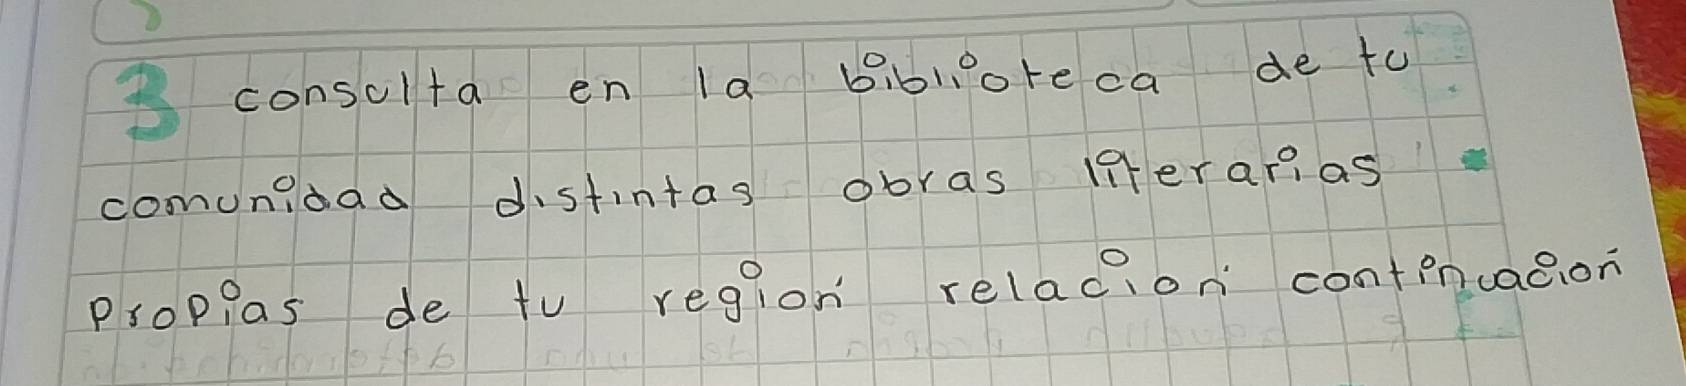 3 consulta en la biblioteca de tu
comunidad distintas obras literarias
propias de tu región relación continuación